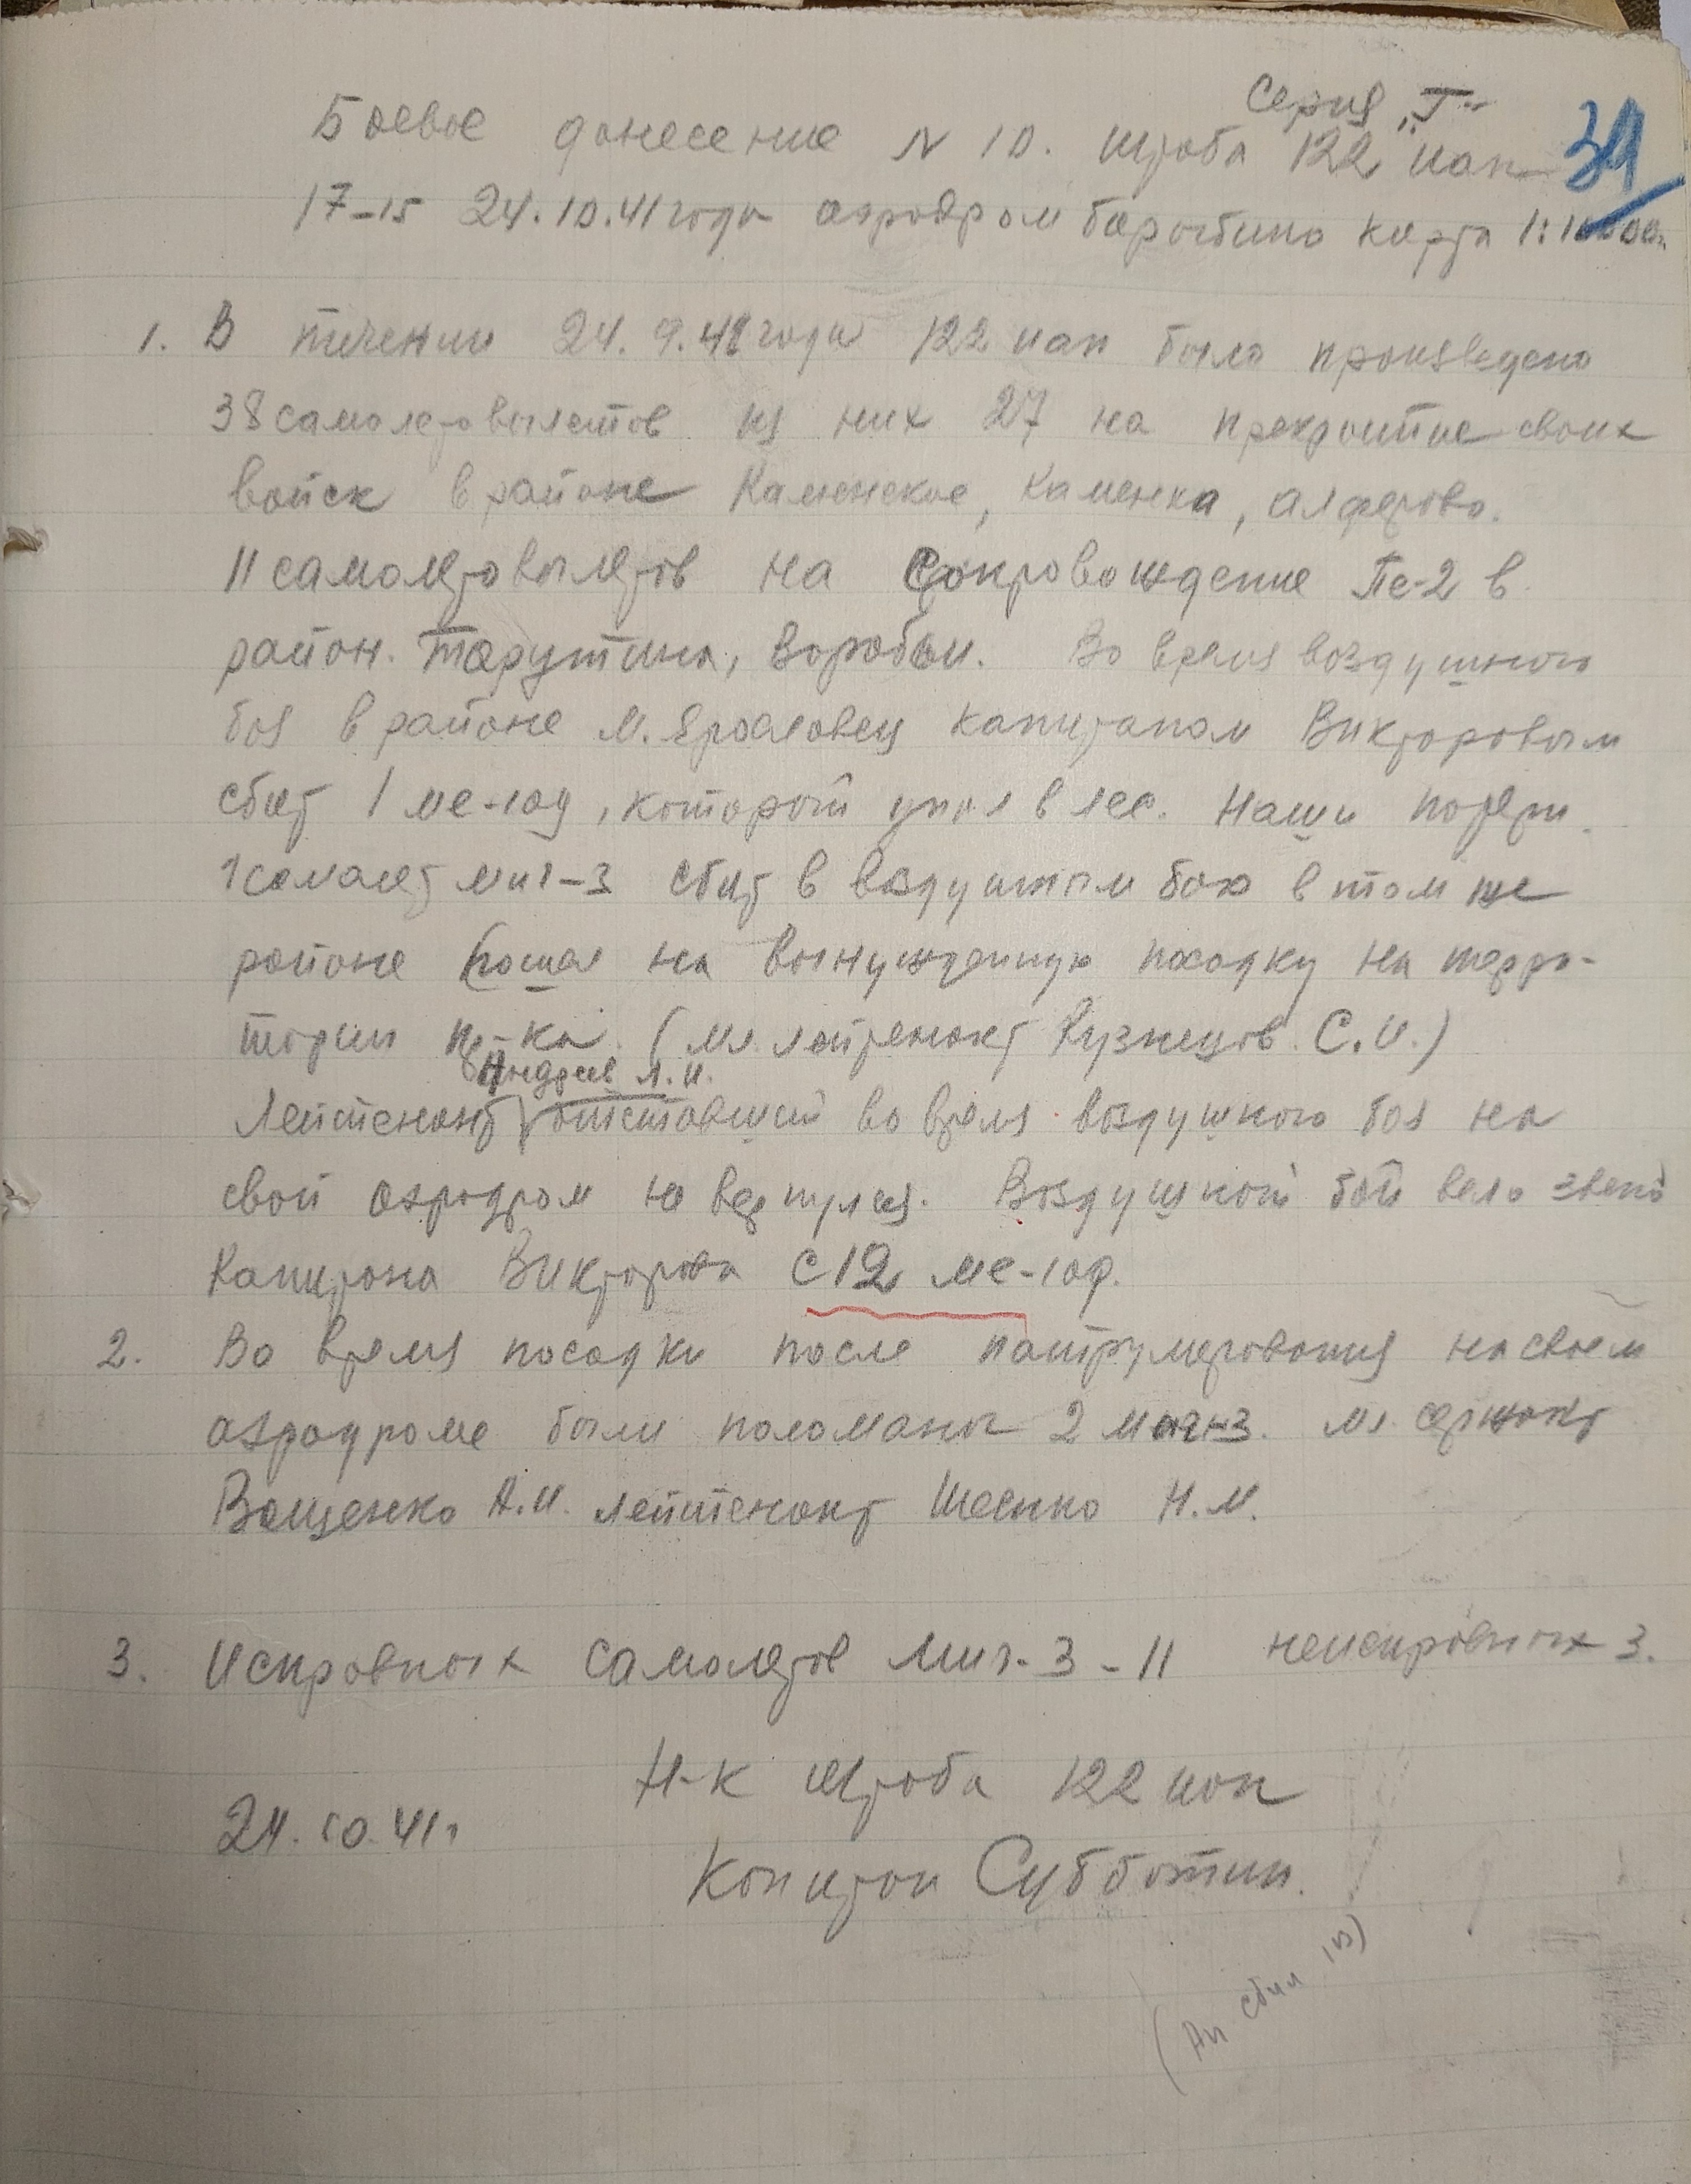 Серия "Г"
34
Боевое донесение N 10. штаба 122 иап
17-15 24.10.41 года аэродром Барыбино карта 1:100000.
1. В течении 24.9.41 года 122 иап было произведено
38 самолетовылетов из них 27 на прекрытие своих
войск в районе Каменское, Каменка, Алферово.
11 самолетовылетов на сопровождение Пе-2 в
район. Тарутина, Воробьи. Во время воздушного
боя в районе М. Ярославец капитаном Викторовым
сбит 1 ме-109, который упал в лес. Наши потери
1 самолет миг-3 сбит в воздушном бою в том же
районе (пошел на вынужденную посадку на терри-
тории пр-ка. (мл. лейтенант Кузнецов. С.И.)
Андреев Л.И.
Лейтенант отставший во время воздушного боя на
свой аэродром не вернулся. Воздушной бой вело звено
Капитана Викторова с 12 ме-109.
2. Во время посадки после патрулирования на своем
аэродроме были поломаны 2 миг-3. мл. сержант
Ващенко А.И. лейтенант Шепко Н.М.
3. Исправных самолетов миг-3 - 11 неисправных 3.
Н-к штаба 122 иап
24.10.41 г
Капитан Субботин.
сбил